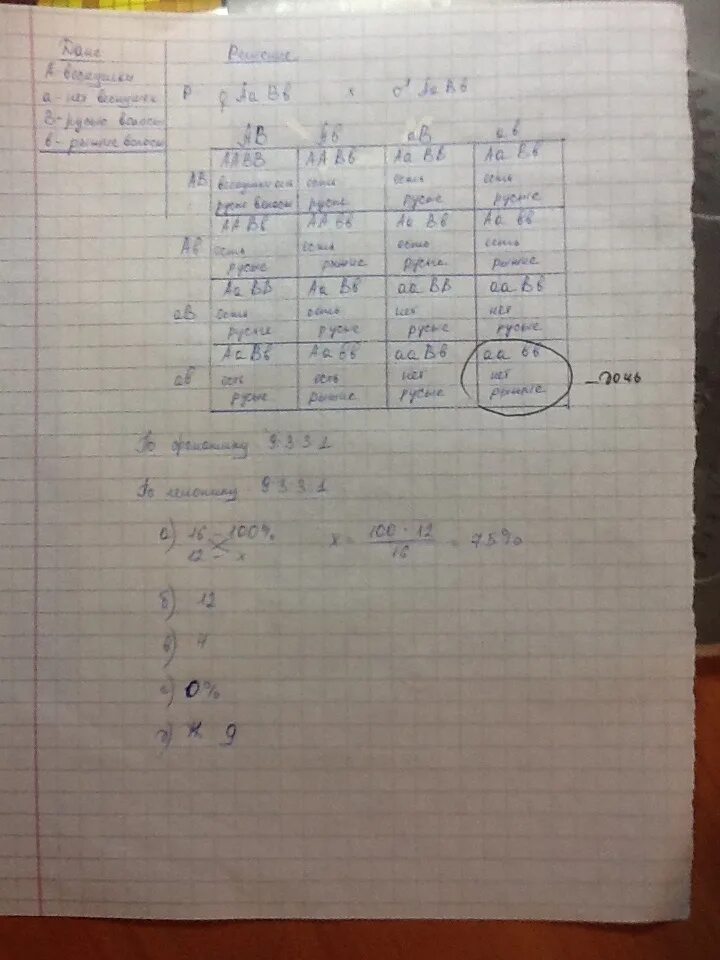 Дано
А- веснушки
а- нет веснушек
В- русые волосы
в- рыжие волосы
Решение
Р ♀ АаВв х ♂ АаВв
АВ Ав аВ ав
АВ ААВВ ААВв АаВВ АаВв
веснушки есть есть есть есть
русые волосы русые русые русые
Ав ААВв ААвв АаВв Аавв
есть есть есть есть
русые рыжие русые рыжие
аВ АаВВ АаВв ааВВ ааВв
есть есть нет нет
русые русые русые русые
ав АаВв Аавв ааВв аавв
есть есть нет нет – дочь
русые рыжие русые рыжие
По фенотипу 9 3 3 1
По генотипу 9 3 3 1
а) 16 - 100% х = 100 · 12 / 16 = 75%
12 - х
б) 12
в) 4
г) 0%
д) 9